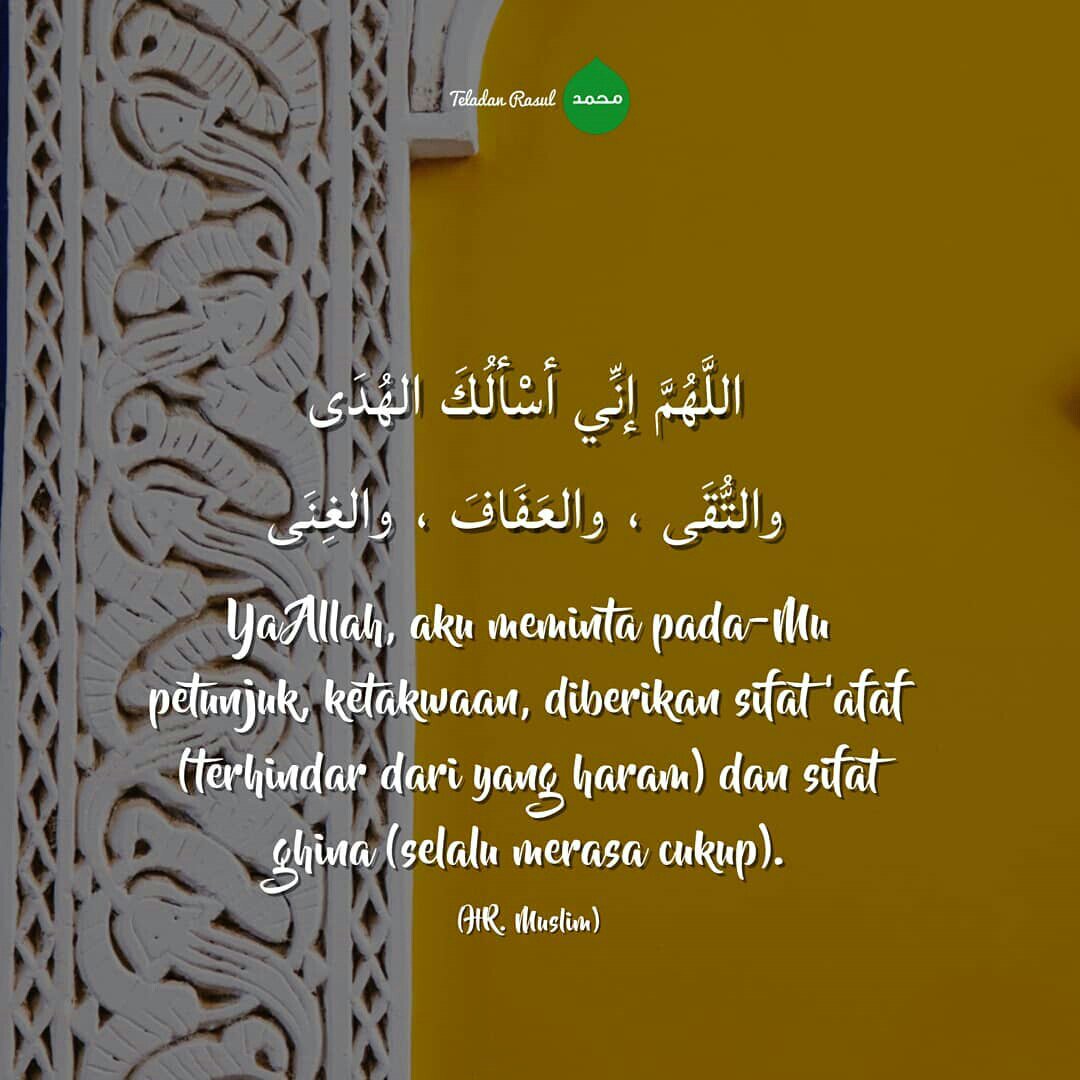 Teladan Rasul محمد
اللَّهُمَّ إِنِّي أَسْأَلُكَ الهُدَى
والتُّقَى ، والعَفَافَ ، والغِنَى
Ya Allah, aku meminta pada-Mu
petunjuk, ketakwaan, diberikan sifat 'afaf
(terhindar dari yang haram) dan sifat
ghina (selalu merasa cukup).
(HR. Muslim)